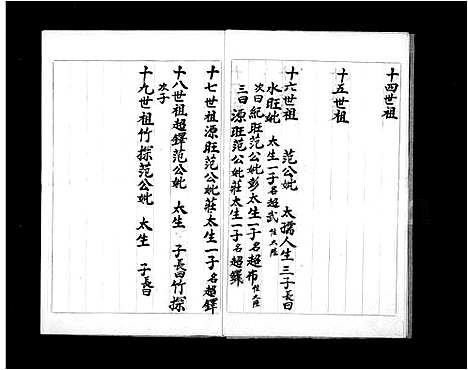 十四世祖
十五世祖
十六世祖 范公妣 太孺人生三子長曰
水旺妣 太生一子名超武住大陸
次曰紀旺范公妣彭太生一子名超布住大陸
三曰源旺范公妣莊太生一子名超鐸
十七世祖源旺范公妣莊太生一子名超鐸
十八世祖超鐸范公妣 太生 子長曰竹探
次子
十九世祖竹探范公妣 太生 子長曰